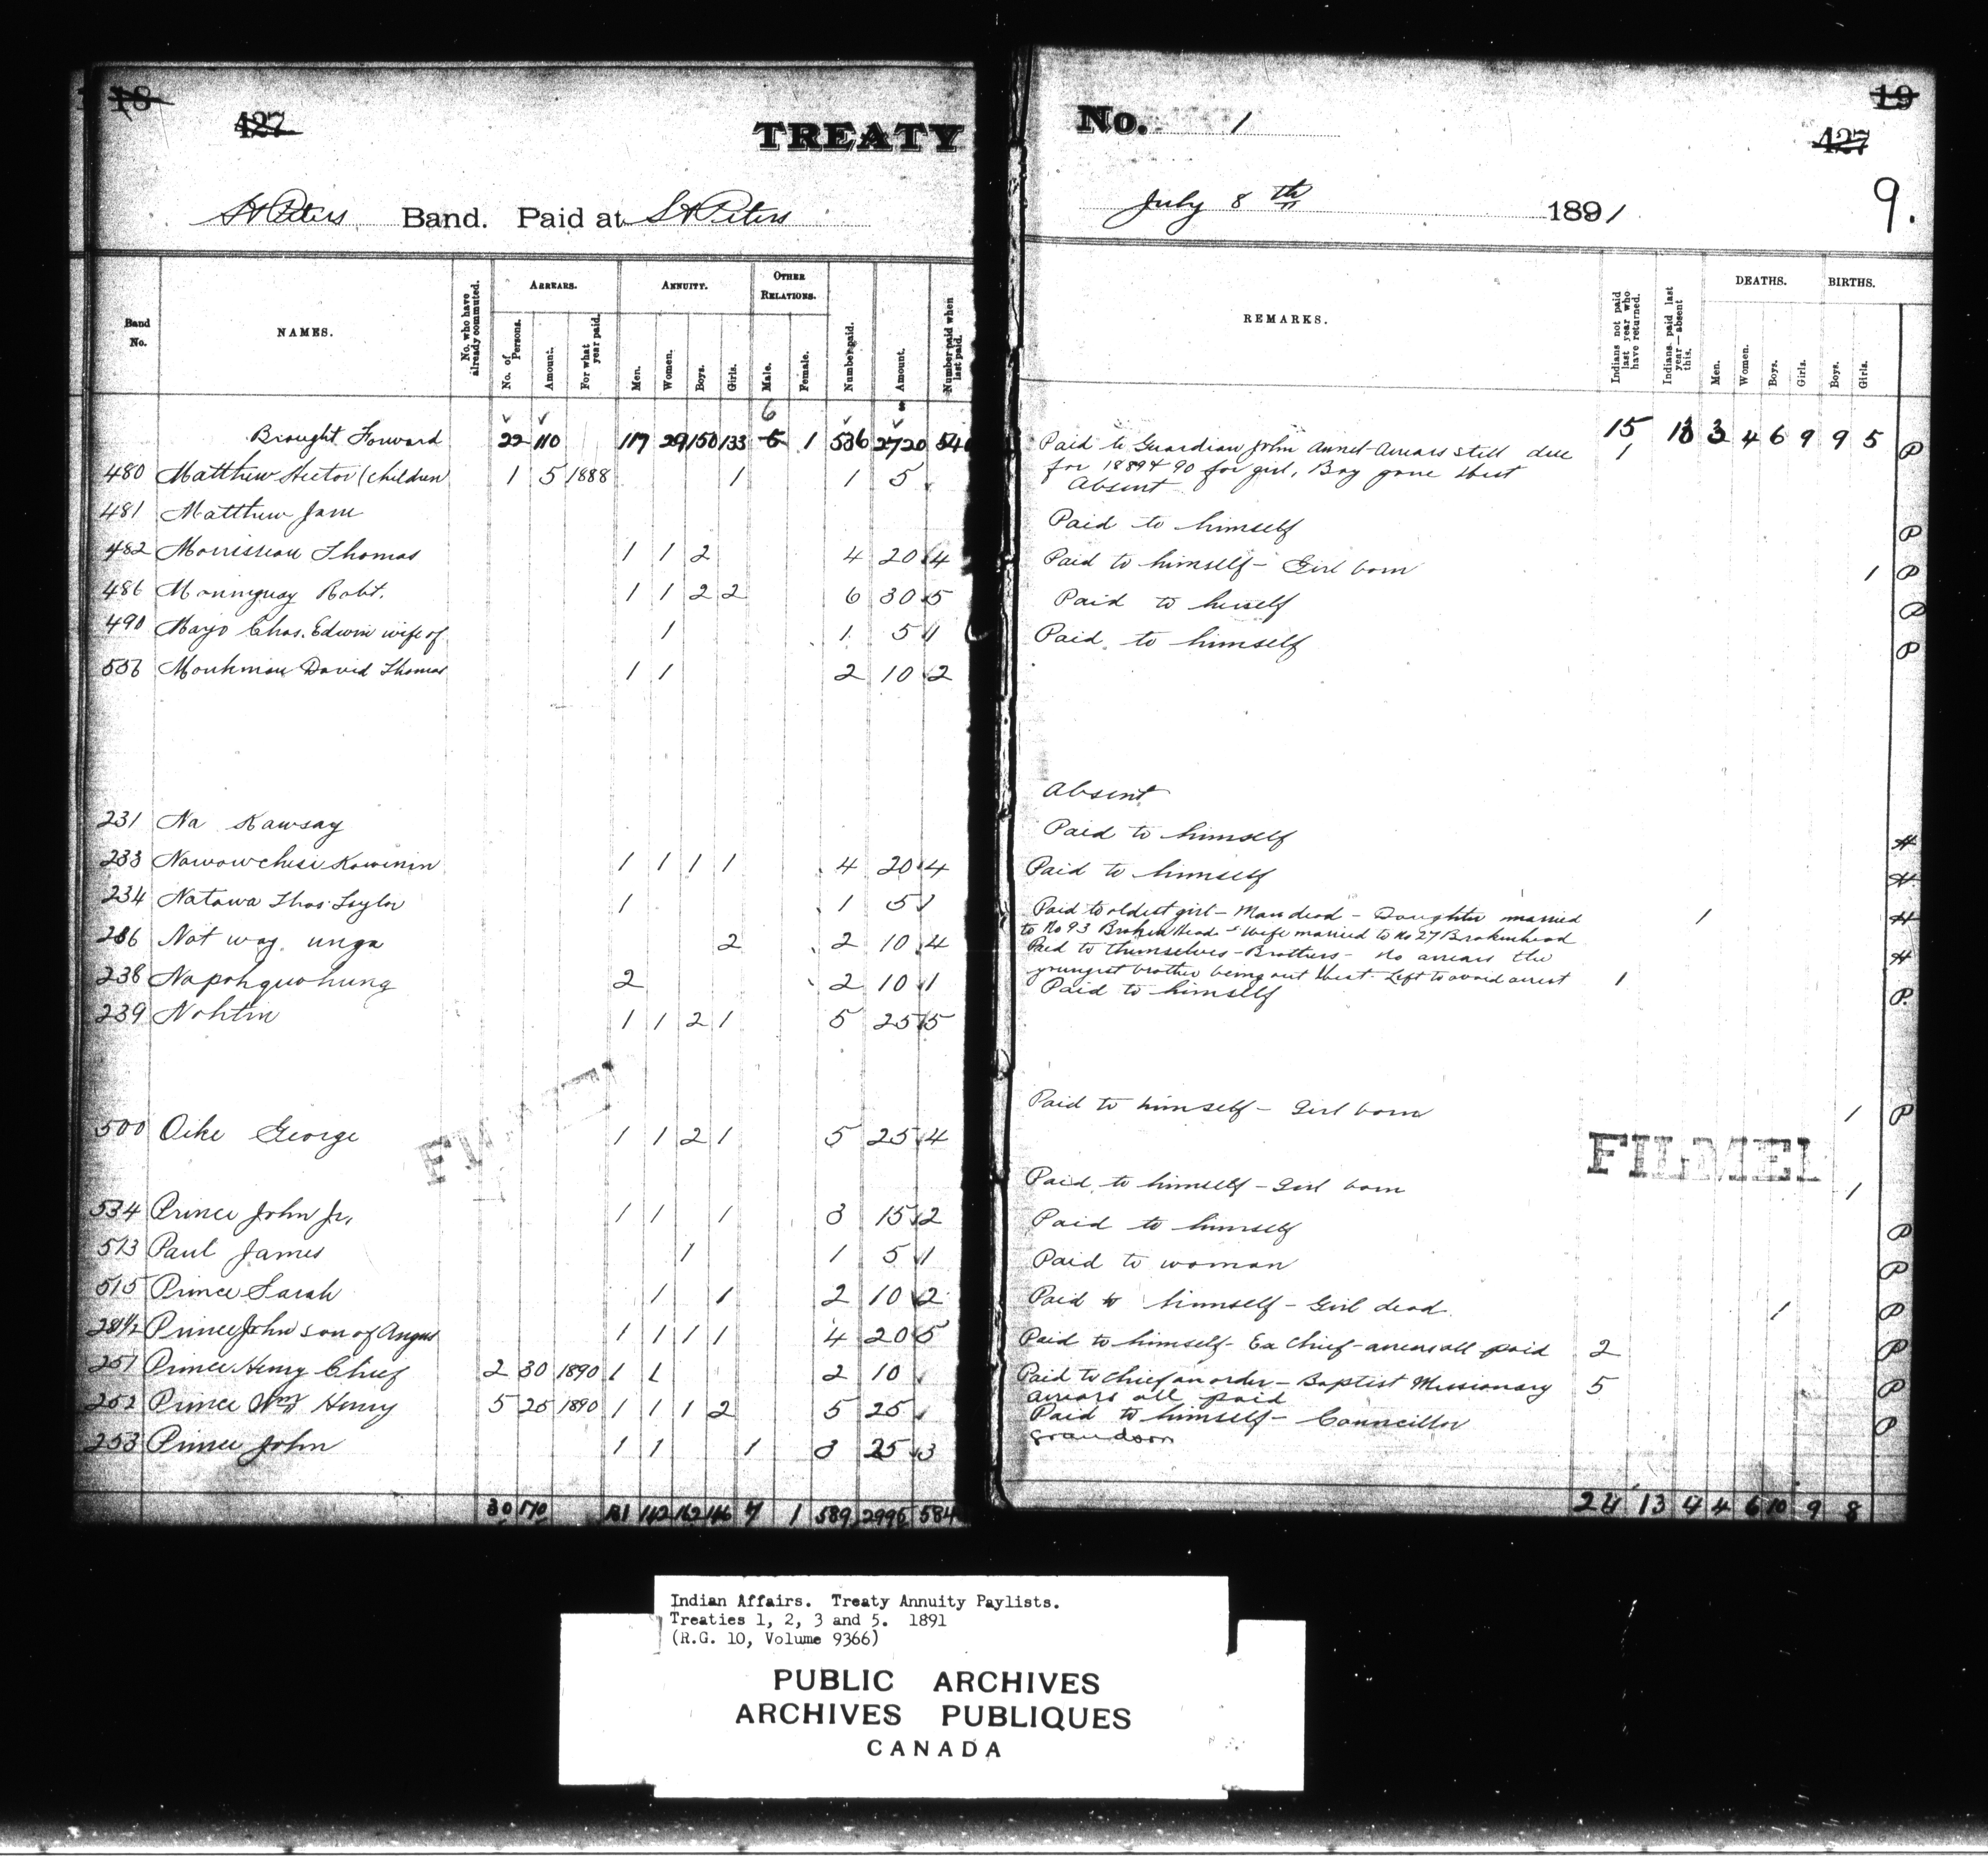 18
427
TREATY No. 1
19
427
St Peters Band. Paid at St Peters July 8th 1891
9.
Band No. NAMES. No. who have already commuted. ARREARS. No. of Persons. Amount. For what year paid. ANNUITY. Men. Women. Boys. Girls. OTHER RELATIONS. Male. Female. Number paid. Amount. Number paid when last paid.
REMARKS. Indians not paid last year who have returned. Indians paid last year—absent this. DEATHS. Men. Women. Boys. Girls. BIRTHS. Boys. Girls.
6
Brought Forward 22 110 150 133 5 1 536 2720 15 13 3 4 6 9 9 5
480 Matthew Hector (children 1 5 1888 1 1 5 Paid to Guardian John Arrears still due 1 P
for 1889 & 90 for girl, Boy gone West
481 Matthew Jane Absent
482 Morrisseau Thomas 1 1 2 4 20 4 Paid to himself P
486 Robt. 1 1 2 2 6 30 5 Paid to himself - Girl born 1 P
490 Mayo Chas. Edwin wife of 1 1 5 1 Paid to herself P
Monkman David Thomas 1 1 2 10 2 Paid to himself P
231 Na Kawsay Absent
233 1 1 1 1 4 20 4 Paid to himself H
234 Natawa Thos Taylor 1 1 5 1 Paid to himself H
Nat way unga 2 2 10 4 Paid to oldest girl - Man dead - Daughter married 1 H
to No 93 Broken Head - Wife married to No 27 Brokenhead
238 Napahquohung 2 2 10 1 Paid to themselves - Brothers - no arrears the H
youngest brother being out West - Left to avoid arrest 1
239 Nohtin 1 1 2 1 5 25 5 Paid to himself P.
500 Oike George 1 1 2 1 5 25 4 Paid to himself - Girl born 1 P
534 Prince John Jr. 1 1 1 3 15 2 Paid to himself - Girl born 1
513 Paul James 1 1 5 1 Paid to himself P
515 Prince Sarah 1 1 2 10 2 Paid to woman P
Prince John son of Angus 1 1 1 1 4 20 5 Paid to himself - Girl dead 1 P
251 Prince Henry Chief 2 30 1890 1 1 2 10 Paid to himself - Ex Chief - arrears all paid 2 P
252 Prince Wm Henry 5 25 1890 1 1 1 2 5 25 Paid to Chief on order - Baptist Missionary 5 P
arrears all paid
253 Prince John 1 1 1 3 25 3 Paid to himself - Councillor P
grandson
30 170 131 142 162 146 7 1 589 2995 584 24 13 4 4 6 10 9 8
FILMED
Indian Affairs. Treaty Annuity Paylists.
Treaties 1, 2, 3 and 5. 1891
(R.G. 10, Volume 9366)
PUBLIC ARCHIVES
ARCHIVES PUBLIQUES
CANADA